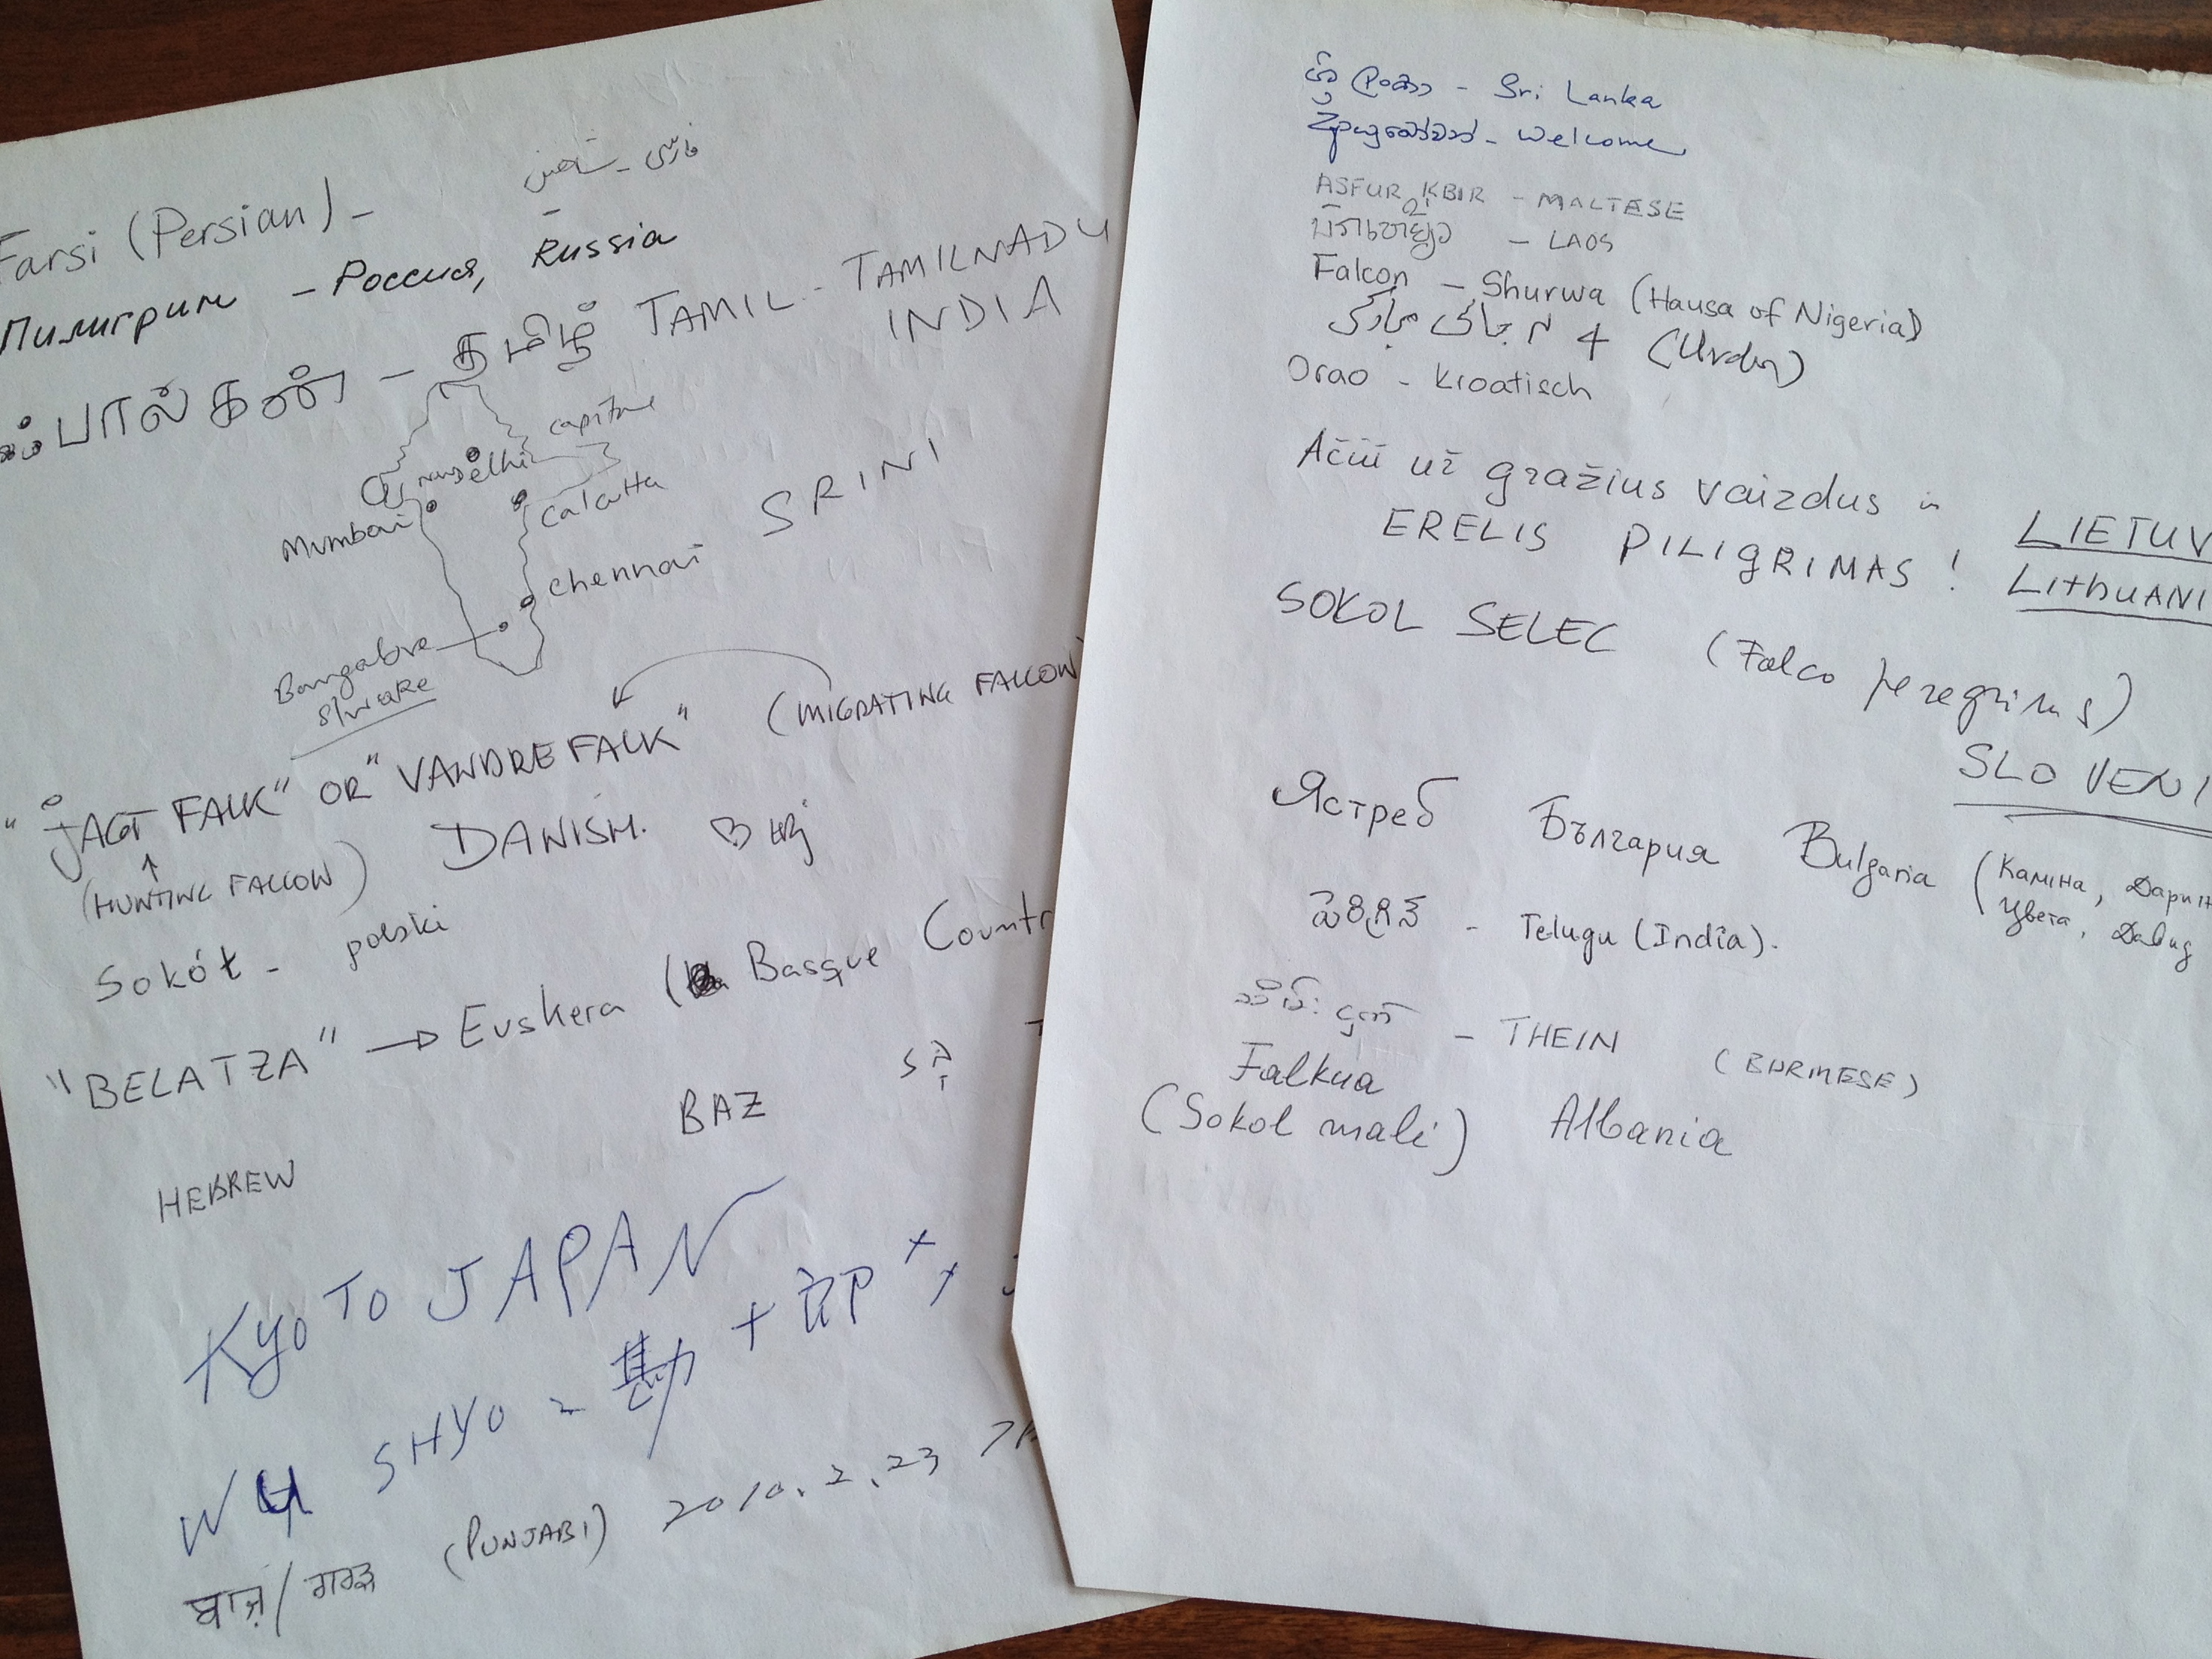 فارسی - شاهین
Farsi (Persian) -
Пилигрим - Россия, Russia
ஃபால்கன் - தமிழ் TAMIL - TAMILNADU
INDIA
capitale
New Delhi
Mumbai
Calcutta
SRINI
Chennai
Bangalore
(MIGRATING FALCON)
"JAGT FALK" OR "VANDRE FALK"
(HUNTING FALCON) DANISH.
Sokół - polski
"BELATZA" → Euskera (Basque Countr
BAZ
HEBREW
KYOTO JAPAN
WU SHYO = 勘
(PUNJABI) 2010.2.23
ਬਾਜ਼/ਗਰੜ
ශ්‍රී ලංකා - Sri Lanka
- Welcome
ASFUR KBIR - MALTESE
- LAOS
Falcon - Shurwa (Hausa of Nigeria)
4 (Urdu)
Orao - Kroatisch
Ačiū už gražius vaizdus
ERELIS PILIGRIMAS! LIETUV
LithUANI
SOKOL SELEC (Falco peregrinus)
SLOVENI
Ястреб България Bulgaria (Камна, Дарин
Цвета, Давид
పెరిగ్రిన్ - Telugu (India).
သိမ်းငှက် - THEIN (BURMESE)
Falkua
(Sokol mali) Albania